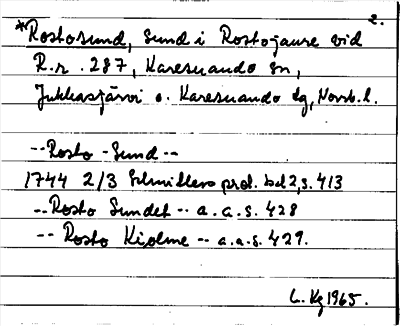 2.
*Rostosund, sund i Rostojaure vid
R.r. 287, Karesuando sn,
Jukkasjärvi o. Karesuando lg, Norrb.l.
--Rosto-Sund--
1744 2/3 Schnitlers prot. bd 2, s. 413
--Rosto Sundet -- a.a.s. 428
-- Rosto Kiolme -- a.a.s. 429.
L. Kg 1965.